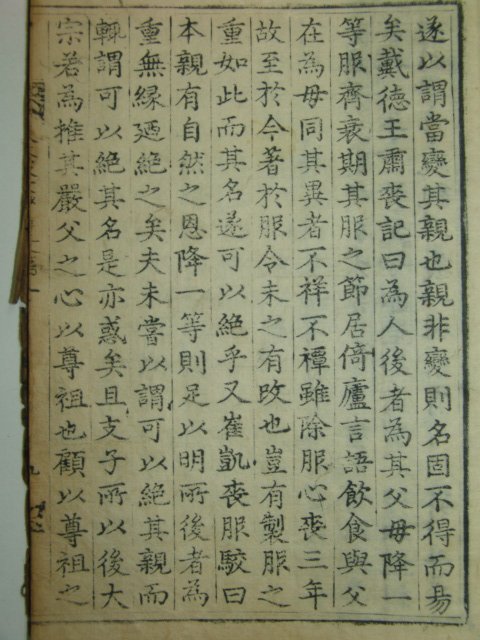 遂以謂當變其親也親非變則名固不得而易
矣戴德王肅喪記曰為人後者為其父母降一
等服齊衰期其服之節居倚廬言語飲食與父
在為母同其異者不祥不禫雖除服心喪三年
故至於今著於服令未之有改也豈有製服之
重如此而其名遂可以絶乎又崔凱喪服駁曰
本親有自然之恩降一等則足以明所後者為
重無縁廼絶之矣夫未嘗以謂可以絶其親而
輒謂可以絶其名是亦惑矣且支子所以後大
宗者為推其嚴父之心以尊祖也顧以尊祖之